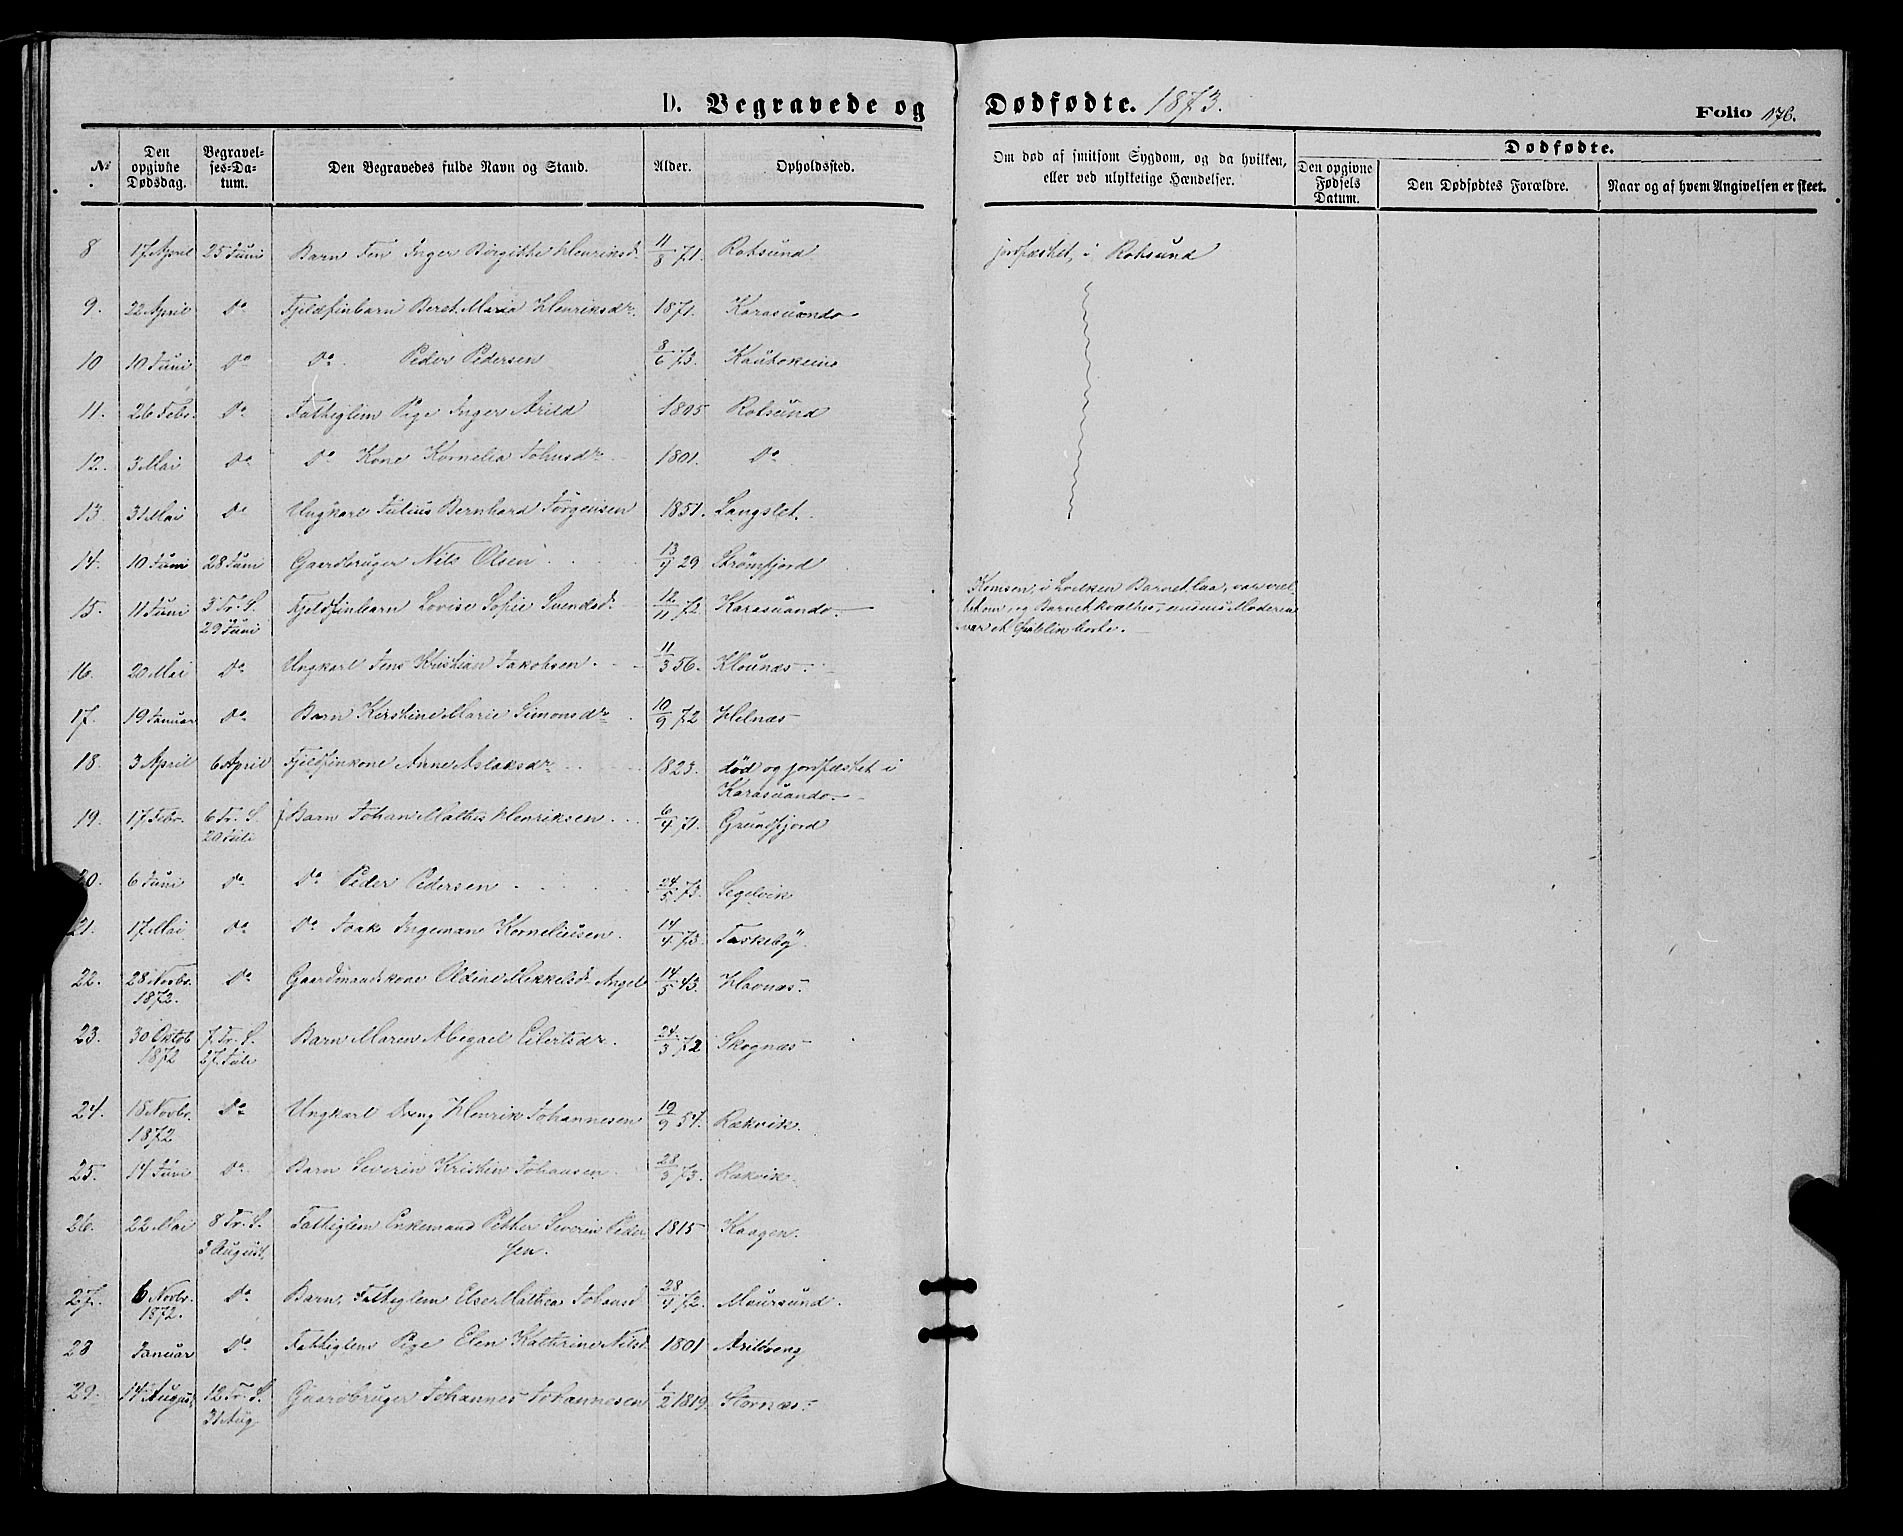 D. Begravede og Dødfødte. 1873. Folio 176.
№ Den opgivne Dødsdag. Begravelses-Datum. Den Begravedes fulde Navn og Stand. Alder. Opholdssted. Om død af smitsom Sygdom, og da hvilken, eller ved ulykkelige Hændelser. Dødfødte. Den opgivne Fødsels Datum. Den Dødfødtes Forældre. Naar og af hvem Angivelsen er skeet.
8 17 April 25 Juni Barn Fin Inger Birgithe Henriksd. 11/8 71. Rotsund jordfæstet, i Rotsund
9. 22 April Do Fjeldfinbarn Beret Maria Henriksdr. 1871. Karasuando
10 10 Juni Do Do. Peder Pedersen 8/6 73. Kautokeino
11. 26 Febr. Do Fattiglem Pige Inger Arild 1805 Rotsund
12. 3 Mai Do Do Kone Kornelia Johnsdr 1801. Do
13. 31 Mai Do Ungkarl Julius Bernhard Jørgensen 1851. Langslet.
14. 10 Juni 28 Juni Gaardbruger Nils Olsen 13/9 29 Strømfjord
15. 11 Juni 3 Tr. S. 29 Juni Fjeldfinbarn Lovise Sofie Svendsd. 12/11 72 Karasuando Komsen, i hvilken Barnet laa, var
om, og Barnet kvaltes, Moderen
var et
16. 20 Mai Do Ungkarl Jens Kristian Jakobsen 11/3 56. Klounæs
17. 19 Januar Do Barn Kirstine Marie Simonsdr 10/9 72 Helnæs
18. 3 April 6 April Fjeldfinkone Anne Aslaksdr 1823. død og jordfæstet i
Karasuando
19. 17 Febr. 6 Tr. S. 20 Juli Barn Johan Mathis Henriksen 6/4 71. Grundfjord
20. 6 Juni Do Do Peder Pedersen 24/5 73. Segelvik
21. 17 Mai Do Do Isak Ingeman Korneliusen. 14/4 73. Taskeby.
22. 28 Novbr. 1872. Do Gaardmandskone Oldine Mikkelsd. Angel 14/5 43. Havnæs
23. 30 Oktob 1872 7 Tr. S. 27 Juli Barn Maren Abegael Eilertsdr. 24/3 72 Skognæs
24. 18 Novbr. 1872 Do Ungkarl Dreng Henrik Johannesen 19/9 54. Rakvik.
25. 14 Juni Do Barn Severin Kristin Johansen 28/3 73. Rakvik
26. 22 Mai 8 Tr. S. 3 August. Fattiglem Enkemand Petter Severin Peder
sen. 1815 Kaagen.
27. 6 Novbr. 1872. Do Barn, Fattiglem Else Mathea Johansd 28/4 72. Maursund.
28 Januar Do Fattiglem Pige Elen Kathrine Nilsd. 1801 Arildseng
29. 14 August 12 Tr. S. 31 Aug Gaardbruger Johannes Johannesen 1/2 1819. Stornæs